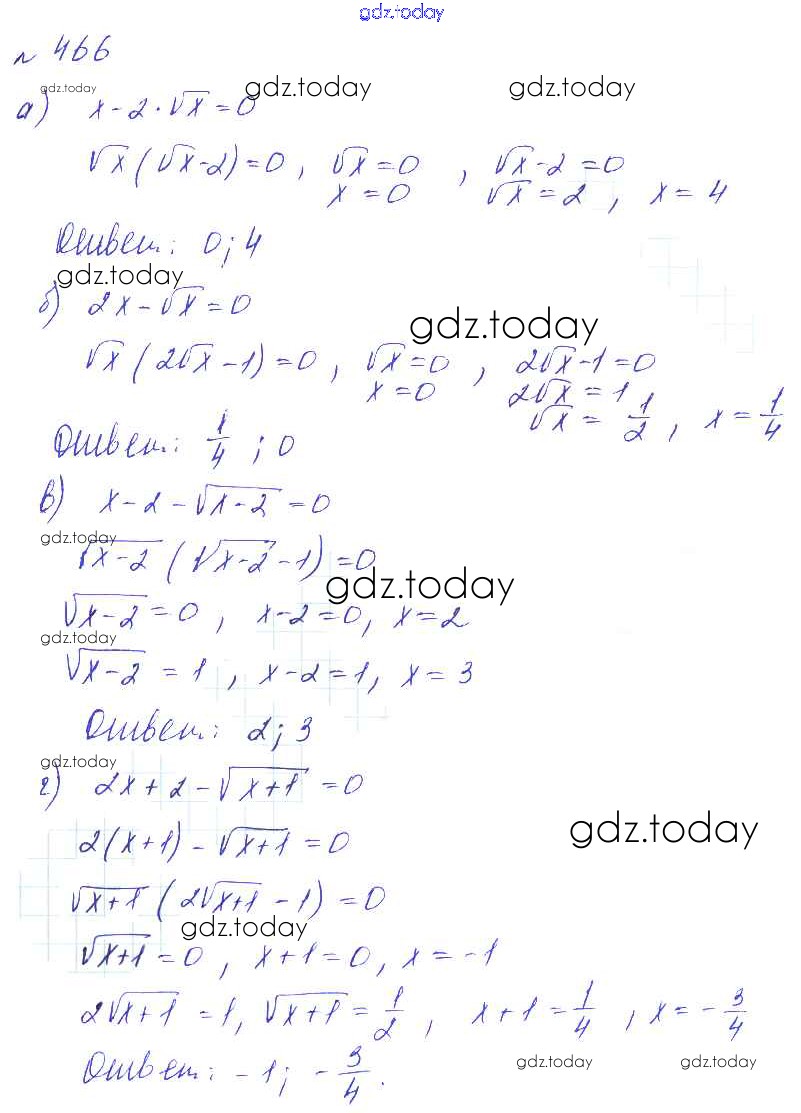 gdz.today
№ 466
gdz.today gdz.today gdz.today
а) x - 2 · √x = 0
√x (√x - 2) = 0 , √x = 0 , √x - 2 = 0
x = 0 √x = 2 , x = 4
Ответ: 0; 4
gdz.today
б) 2x - √x = 0
gdz.today
√x (2√x - 1) = 0 , √x = 0 , 2√x - 1 = 0
x = 0 2√x = 1
√x = 1/2 , x = 1/4
Ответ: 1/4 ; 0
в) x - 2 - √(x - 2) = 0
gdz.today
√(x - 2) (√(x - 2) - 1) = 0
gdz.today
√(x - 2) = 0 , x - 2 = 0, x = 2
gdz.today
√(x - 2) = 1 , x - 2 = 1, x = 3
Ответ: 2; 3
gdz.today
г) 2x + 2 - √(x + 1) = 0
gdz.today
2(x + 1) - √(x + 1) = 0
√(x + 1) (2√(x + 1) - 1) = 0
gdz.today
√(x + 1) = 0 , x + 1 = 0, x = -1
2√(x + 1) = 1, √(x + 1) = 1/2 , x + 1 = 1/4 , x = - 3/4
Ответ: -1; - 3/4.
gdz.today gdz.today